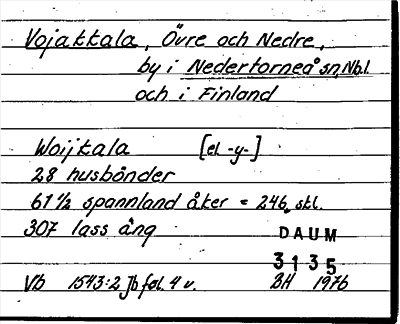 Vojakkala, Övre och Nedre,
by i Nedertorneå sn, Nbl.
och i Finland
Woijkala [el -y-]
28 husbönder
61 1/2 spannland åker = 246 skl.
307 lass äng
DAUM
3135
Vb 1543:2 Jb fol. 4 v. BH 1976